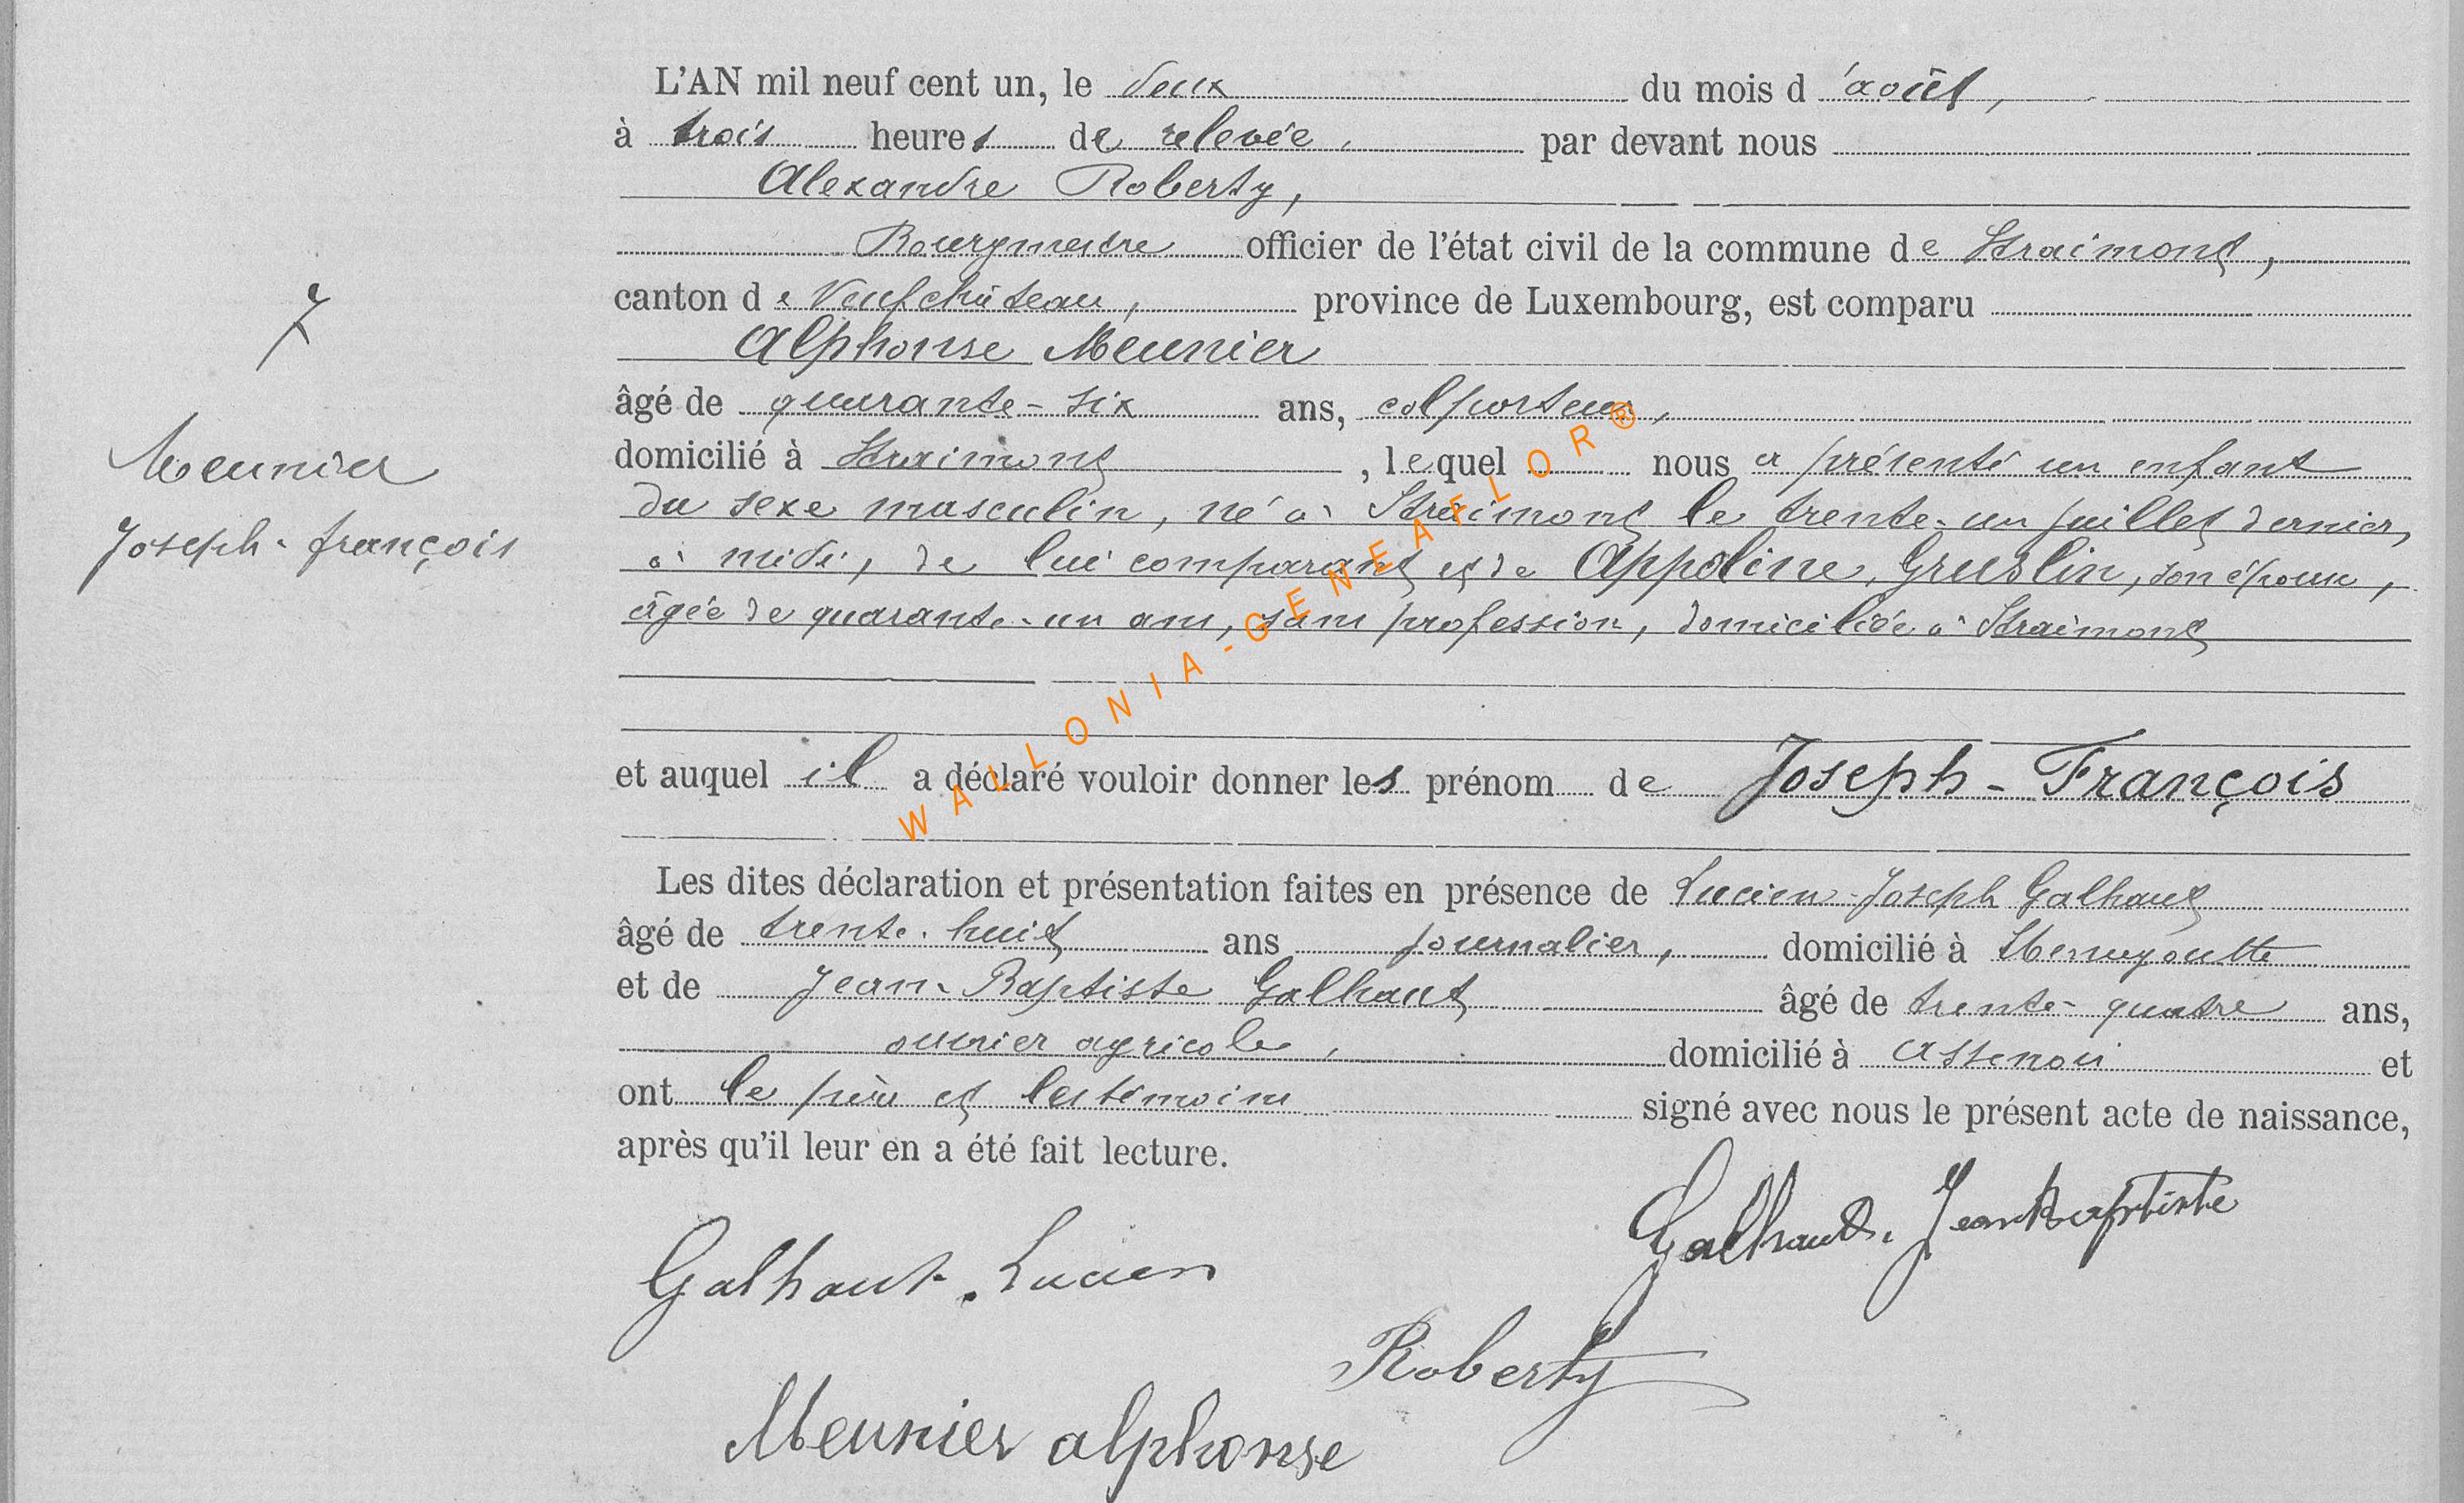 L'AN mil neuf cent un, le deux du mois d'août,
à trois heures de relevée, par devant nous
Alexandre Roberty,
Bourgmestre officier de l'état civil de la commune de Straimont,
canton de Neufchâteau, province de Luxembourg, est comparu
Alphonse Meunier
âgé de quarante-six ans, colporteur,
domicilié à Straimont, lequel nous a présenté un enfant
du sexe masculin, né à Straimont le trente-un juillet dernier,
à midi, de lui comparant et de Appoline Gruslin, son épouse,
âgée de quarante-un ans, sans profession, domiciliée à Straimont
et auquel il a déclaré vouloir donner les prénom de Joseph-François
Les dites déclaration et présentation faites en présence de Lucien-Joseph Galhaut
âgé de trente-huit ans journalier, domicilié à Menugoutte
et de Jean-Baptiste Galhaut âgé de trente-quatre ans,
ouvrier agricole, domicilié à Assenois et
ont le père et les témoins signé avec nous le présent acte de naissance,
après qu'il leur en a été fait lecture.
7
Meunier
Joseph-françois
Galhaut Jean Baptiste
Galhaut. Lucien
Roberty
Meunier alphonse
WALLONIA-GENEAFLOR®